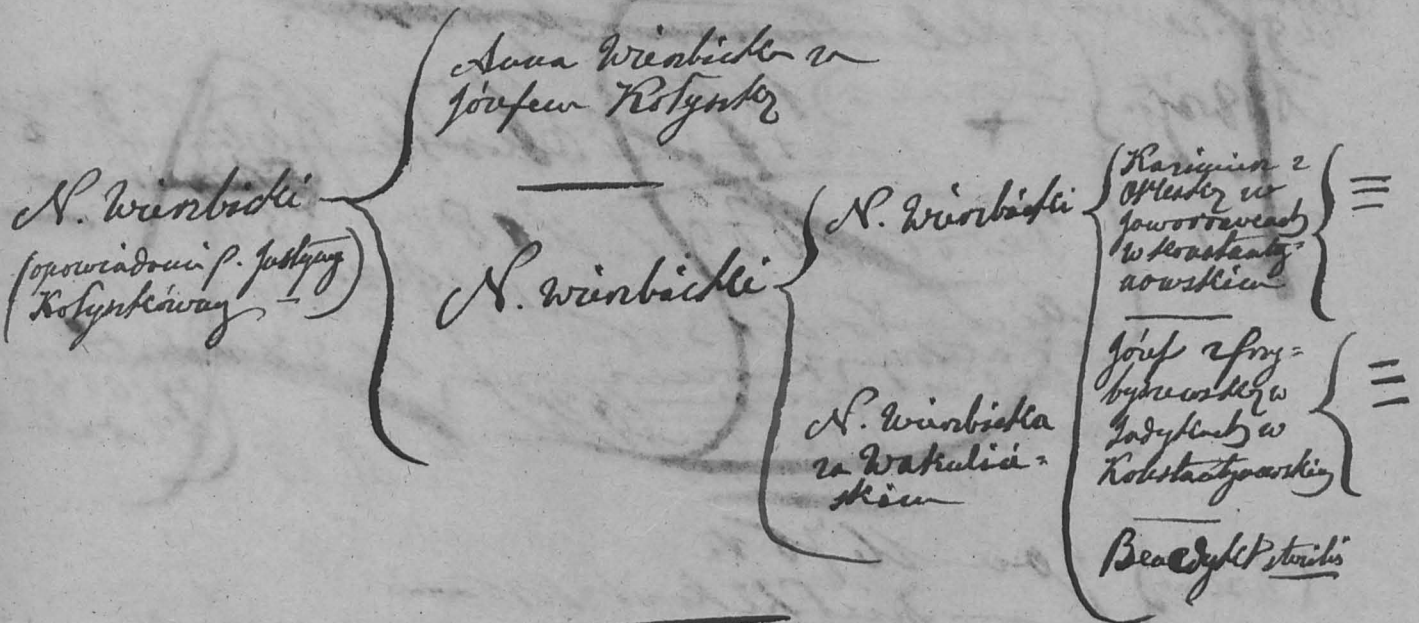 N. Wierzbicki
(opowiadanie p. Justyny
Kołyszkówny —)
Anna Wierzbicka za
Józefem Kołyszką
N. Wierzbicki
N. Wierzbicki
N. Wierzbicka
za Wakuliń=
skim
Kazimierz z
w
Jaworowcach
w Konstanty=
nowskim
Józef z Przy=
byszewską w
Ładykach w
Konstantynowskim
Benedykt sterilis